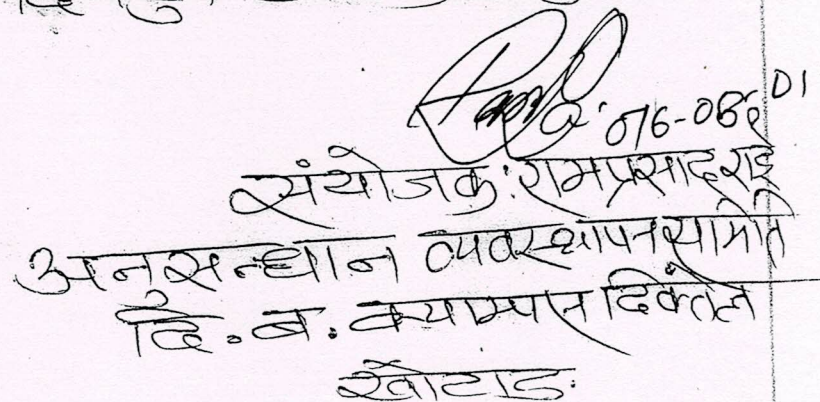 संयोजक: रामप्रसाद राई
अनुसन्धान व्यवस्थापन समिति
दि. ब. क्याम्पस दिक्तेल
खोटाङ